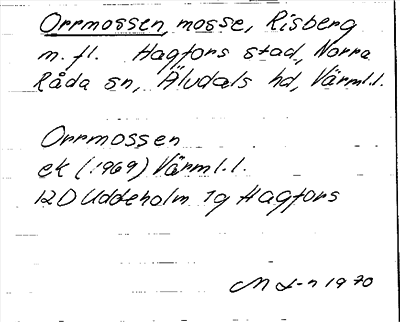 Orrmossen, mosse, Risberg
m. fl. Hagfors stad, Norra
Råda sn, Älvdals hd, Värml.l.
Orrmossen
ek (1969) Värml.l.
12D Uddeholm 1g Hagfors
M L-n 1970